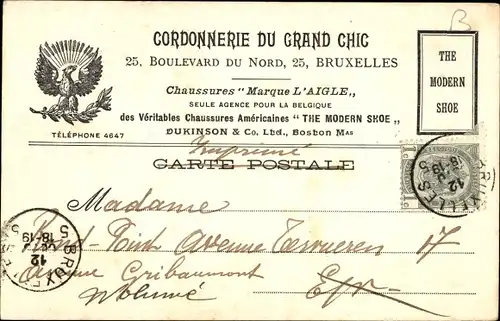 B
CORDONNERIE DU GRAND CHIC
25, BOULEVARD DU NORD, 25, BRUXELLES
Chaussures "Marque L'AIGLE„
SEULE AGENCE POUR LA BELGIQUE
des Véritables Chaussures Américaines "THE MODERN SHOE„
DUKINSON & Co. Ltd., Boston Mas
TÉLÉPHONE 4647
THE
MODERN
SHOE
Imprimé
CARTE POSTALE
BRUXELLES
12
18-19
5
Madame
Rond-Point Avenue Tervueren 17
Avenue
E/V
BRUX
12
18-19
5